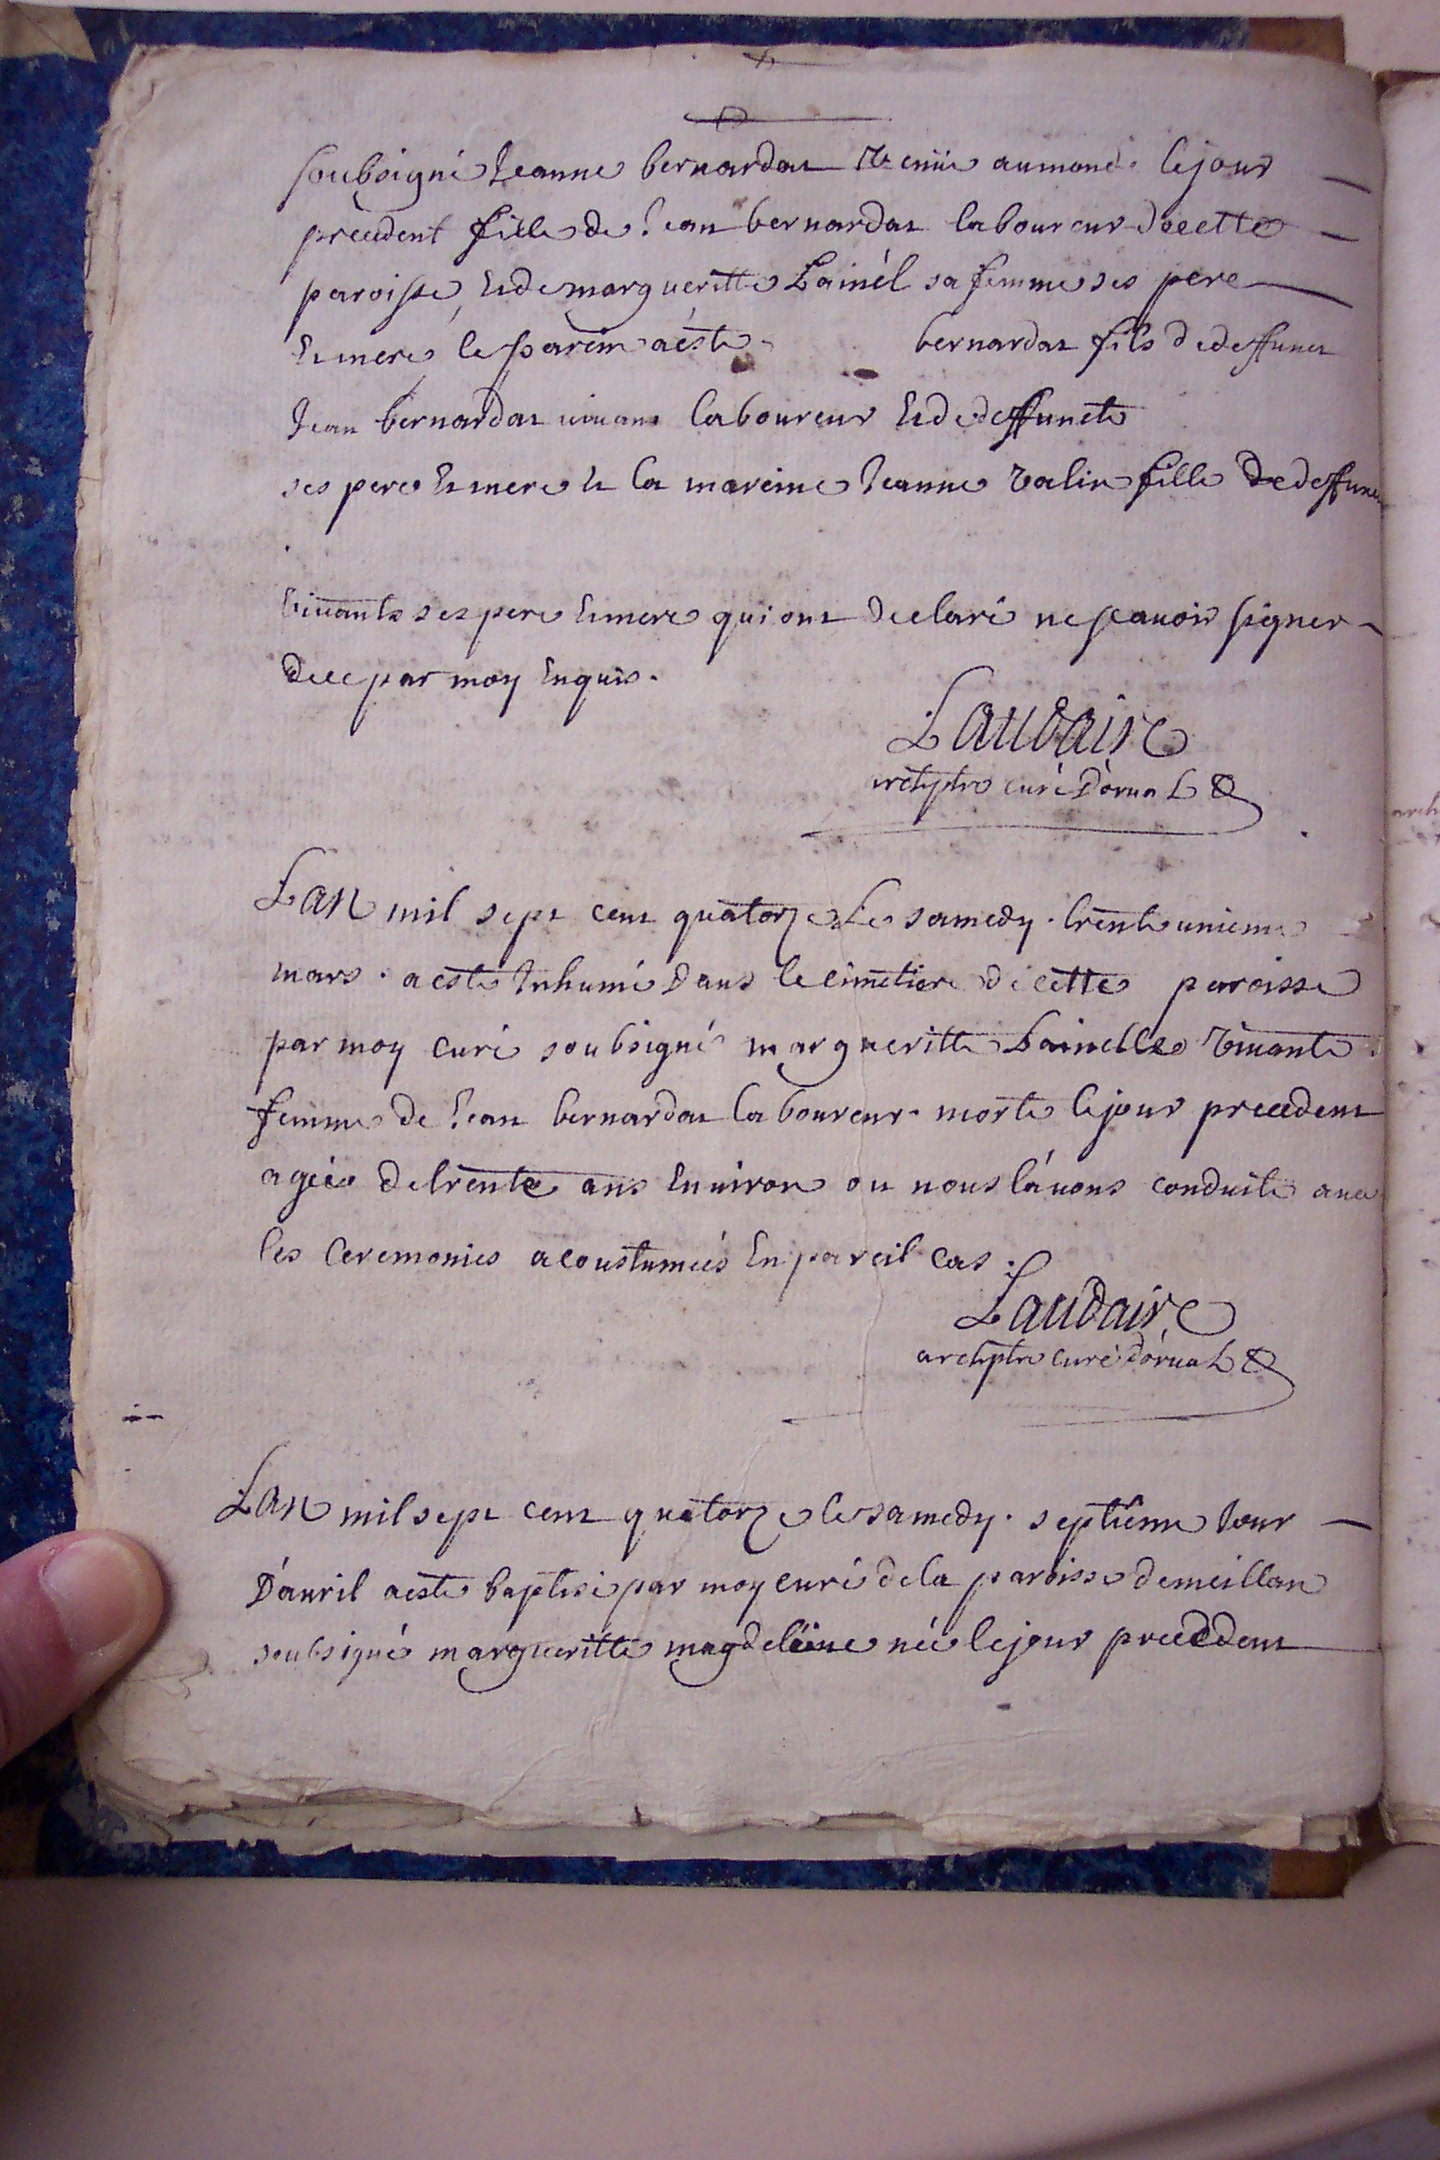 soubsigné Jeanne bernardat venüe au monde le jour
precedent fille de Jean bernardat laboureur de cette
paroisse et de margueritte Lainél sa femme ses pere
et mere le parein a ésté bernardat fils de deffunct
Jean bernardat viuant laboureur et de deffuncte
ses pere et mere et la mareine Jeanne Valin fille de deffunct
viuants ses pere et mere qui ont declaré ne scauoir signer
de ce par moy enquis.
Laudaire
archiptre curé D'orual
L'an mil sept cent quatorze Le samedy trente unieme
mars a esté Inhumé dans le cimetiere de cette paroisse
par moy curé soubsigné margueritte Lainelle viuante
femme de Jean bernardat laboureur morte le jour precedent
agée de trente ans enuiron ou nous l'auons conduite auec
les ceremonies acoustumées en pareil cas.
Laudaire
archiptre curé d'orual
L'an mil sept cent quatorze le samedy septieme Jour
D'auril a esté baptisé par moy curé de la paroisse de meillan
soubsigné margueritte magdeleine née le jour precedent